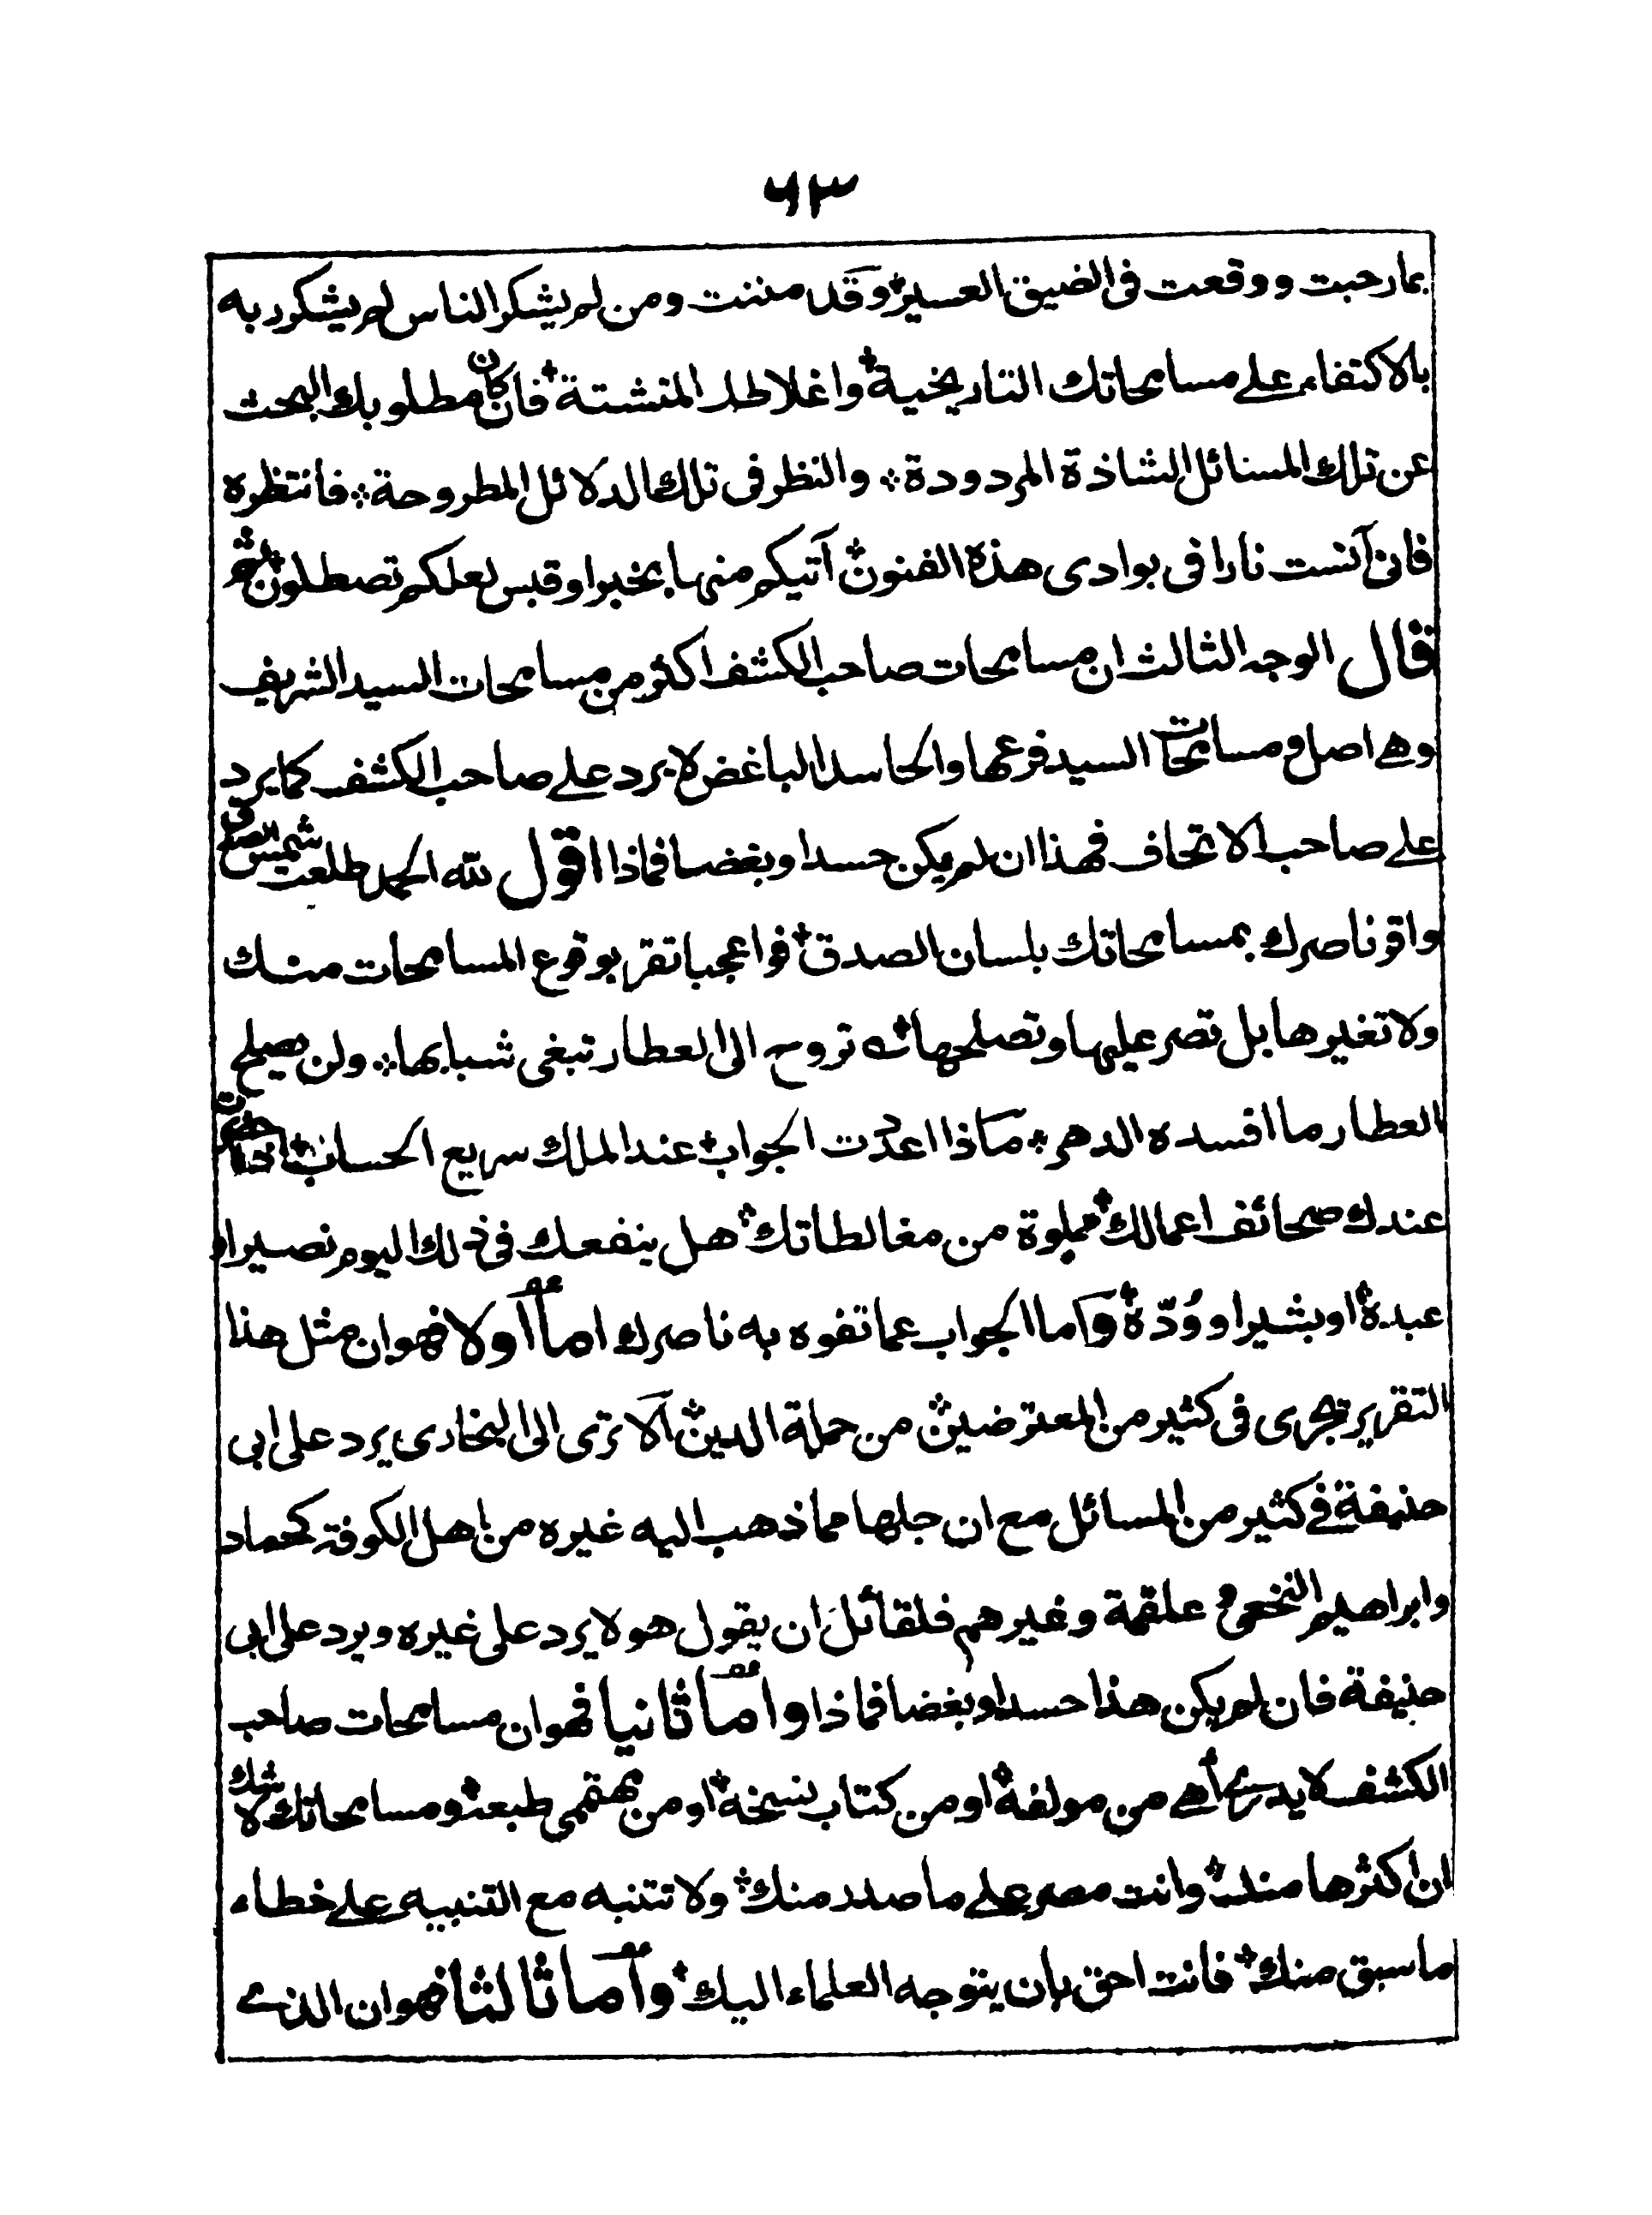 ٦٣
بما رحبت ووقعت في الضيق العسير وقد مننت ومن لم يشكر الناس لم يشكر ربه
بالاكتفاء على مسامحاتك التاريخية واغلاطك المتشتة فان كان مطلوبك البحث
عن تلك المسائل الشاذة المردودة والنظر في تلك الدلائل المطروحة فانتظره
فاني آنست نارا في بوادي هذه الفنون آتيكم منها بخبر او قبس لعلكم تصطلون ثم
قال الوجه الثالث ان مسامحات صاحب الكشف اكثر من مسامحات السيد الشريف
وهي اصل ومسامحات السيد فرعها والحاسد الباغض لا يرد على صاحب الكشف كما يرد
على صاحب الاتحاف فهذا ان لم يكن حسدا وبغضا فماذا اقول لله الحمد طلعت شمس الصدق
واقر ناصرك بمسامحاتك بلسان الصدق فوا عجبا تقر بوقوع المسامحات منك
ولا تغيرها بل تصر عليها وتصلحها ؎ تروح الى العطار تبغي شبابها ولن يصلح
العطار ما افسده الدهر ماذا اعددت الجواب عند الملك سريع الحساب اذا حضرت
عندك صحائف اعمالك مملوة من مغالطاتك هل ينفعك في ذلك اليوم نصير او
عبدة او بشير او ودة واما الجواب عما تفوه به ناصرك اما اولا فهو ان مثل هذا
التقرير تجري في كثير من المعترضين من حملة الدين الا ترى الى البخاري يرد على ابي
حنيفة في كثير من المسائل مع ان جلها مما ذهب اليه غيره من اهل الكوفة كحماد
وابراهيم النخعي وعلقمة وغيرهم فلقائل ان يقول هو لا يرد على غيره ويرد على ابي
حنيفة فان لم يكن هذا حسدا وبغضا فماذا واما ثانيا فهو ان مسامحات صاحب
الكشف لا يدرى أهي من مولفه او من كتاب نسخه او من مهتمي طبعه ومسامحاتك لا شك
ان اكثرها منك وانت مصر على ما صدر منك ولا تتنبه مع التنبيه على خطاء
ما سبق منك فانت احق بان يتوجه العلماء اليك واما ثالثا فهو ان الذي